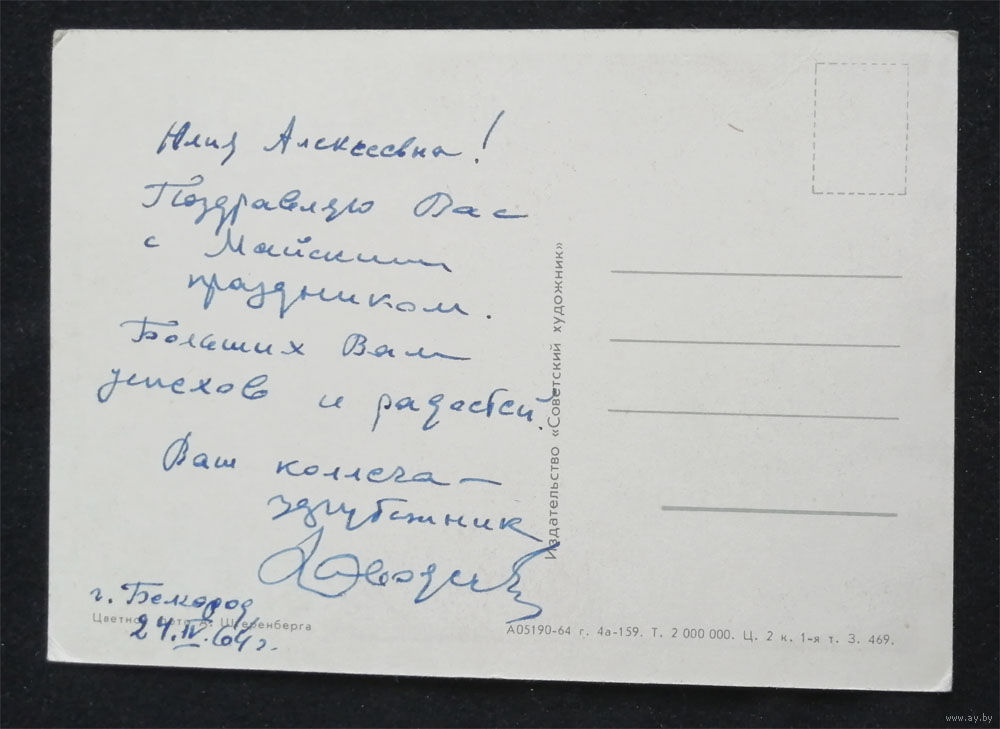 Юлия Алексеевна!
Поздравляю Вас
с Майским
праздником.
Больших Вам
успехов и радостей.
Ваш коллега –
г. Белгород
24.IV.64 г.
Цветное фото А. Штеренберга
Издательство «Советский художник»
А05190-64 г. 4а-159. Т. 2 000 000. Ц. 2 к. 1-я т. З. 469.
www.ay.by